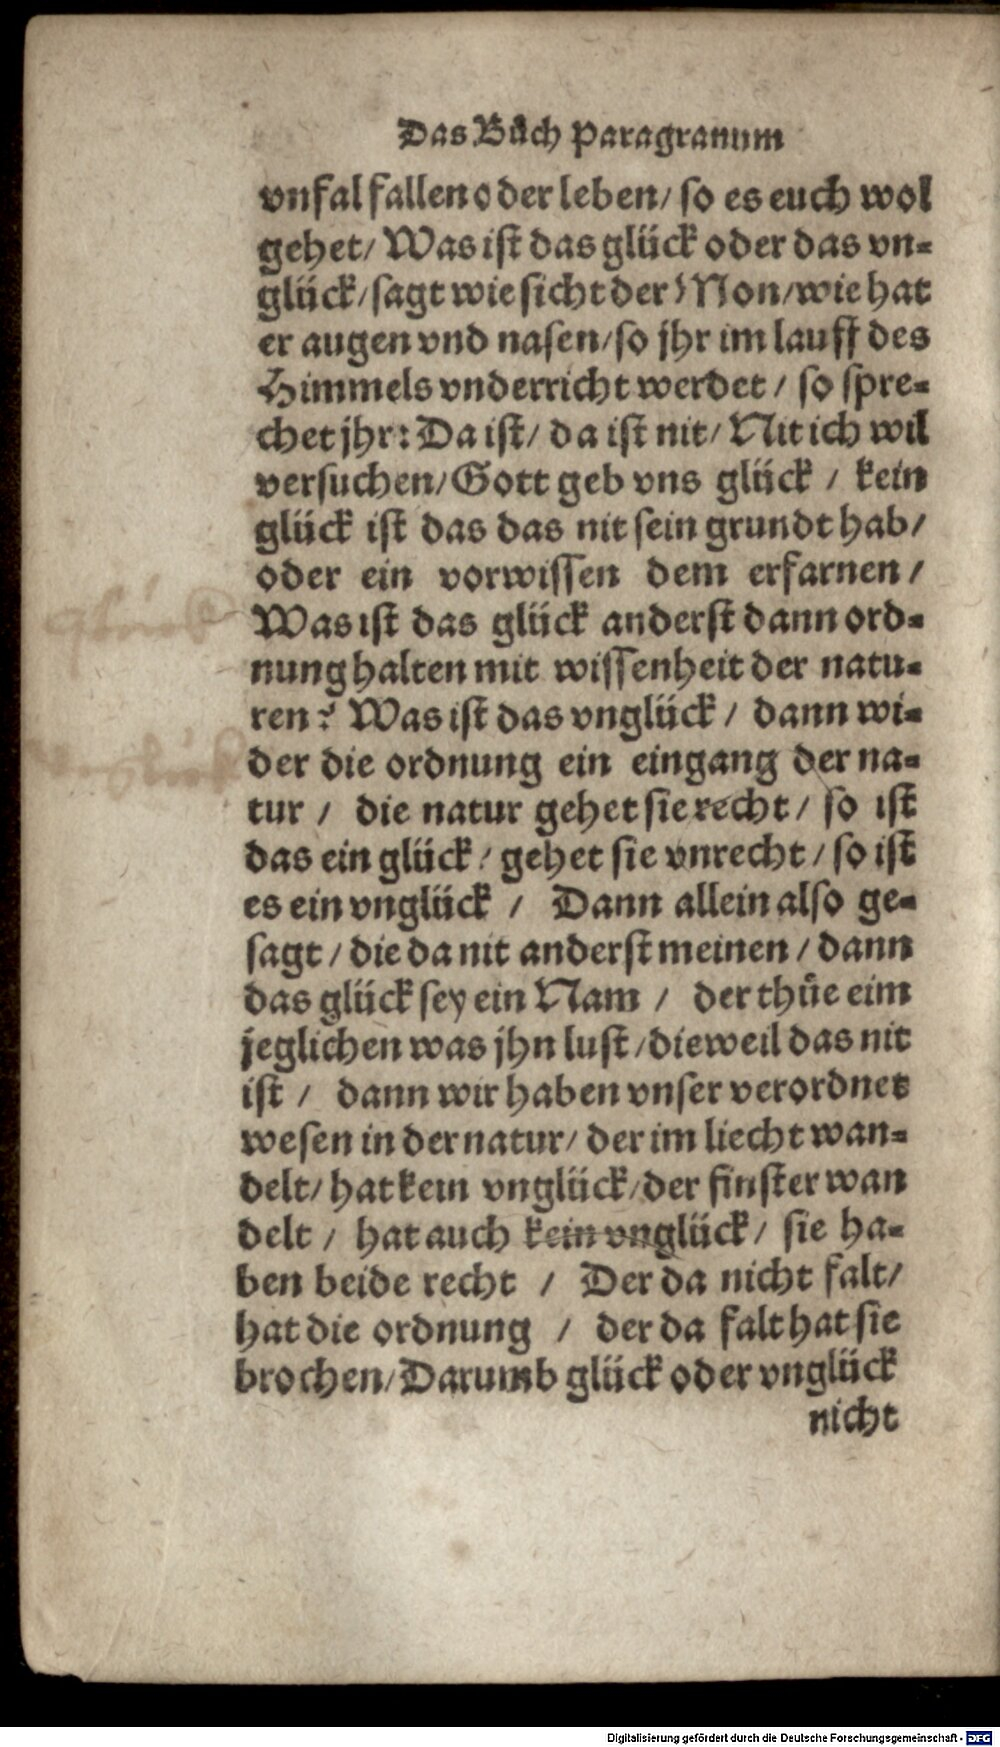 Das Bůch Paragranum
vnfal fallen oder leben/ so es euch wol
gehet/ Was ist das glück oder das vn=
glück/ sagt wie sicht der Mon/ wie hat
er augen vnd nasen/ so jhr im lauff des
Himmels vnderricht werdet / so spre=
chet jhr: Da ist/ da ist nit/ Nit ich wil
versuchen/ Gott geb vns glück / kein
glück ist das das nit sein grundt hab/
oder ein vorwissen dem erfarnen /
Was ist das glück anderst dann ord=
nung halten mit wissenheit der natu=
ren? Was ist das vnglück / dann wi=
der die ordnung ein eingang der na=
tur / die natur gehet sie recht / so ist
das ein glück / gehet sie vnrecht / so ist
es ein vnglück / Dann allein also ge=
sagt / die da nit anderst meinen / dann
das glück sey ein Nam / der thůe eim
jeglichen was jhn lust / dieweil das nit
ist / dann wir haben vnser verordnet
wesen in der natur/ der im liecht wan=
delt/ hat kein vnglück/ der finster wan
delt / hat auch kein vnglück/ sie ha=
ben beide recht / Der da nicht falt/
hat die ordnung / der da falt hat sie
brochen/ Darumb glück oder vnglück
nicht
Digitalisierung gefördert durch die Deutsche Forschungsgemeinschaft - DFG